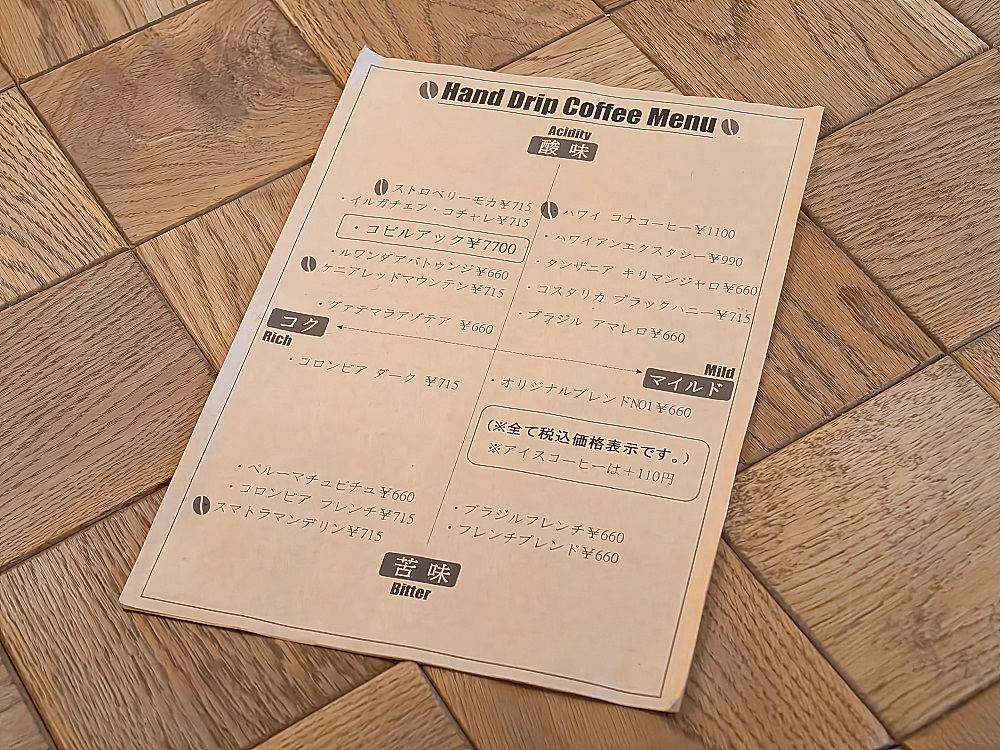 Hand Drip Coffee Menu
Acidity
酸味
ストロベリーモカ¥715
・イルガチェフ・コチャレ¥715
・コピルアック¥7700
・ルワンダアバトゥンジ¥660
ケニアレッドマウンテン¥715
・グァテマラアゾテア ¥660
ハワイ コナコーヒー¥1100
・ハワイアンエクスタシー¥990
・タンザニア キリマンジャロ¥660
・コスタリカ ブラックハニー¥715
・ブラジル アマレロ¥660
コク
Rich
Mild
マイルド
・コロンビア ダーク ¥715
・オリジナルブレンドNO1¥660
(※全て税込価格表示です。)
※アイスコーヒーは+110円
・ペルーマチュピチュ¥660
・コロンビア フレンチ¥715
スマトラマンデリン¥715
・ブラジルフレンチ¥660
・フレンチブレンド¥660
苦味
Bitter